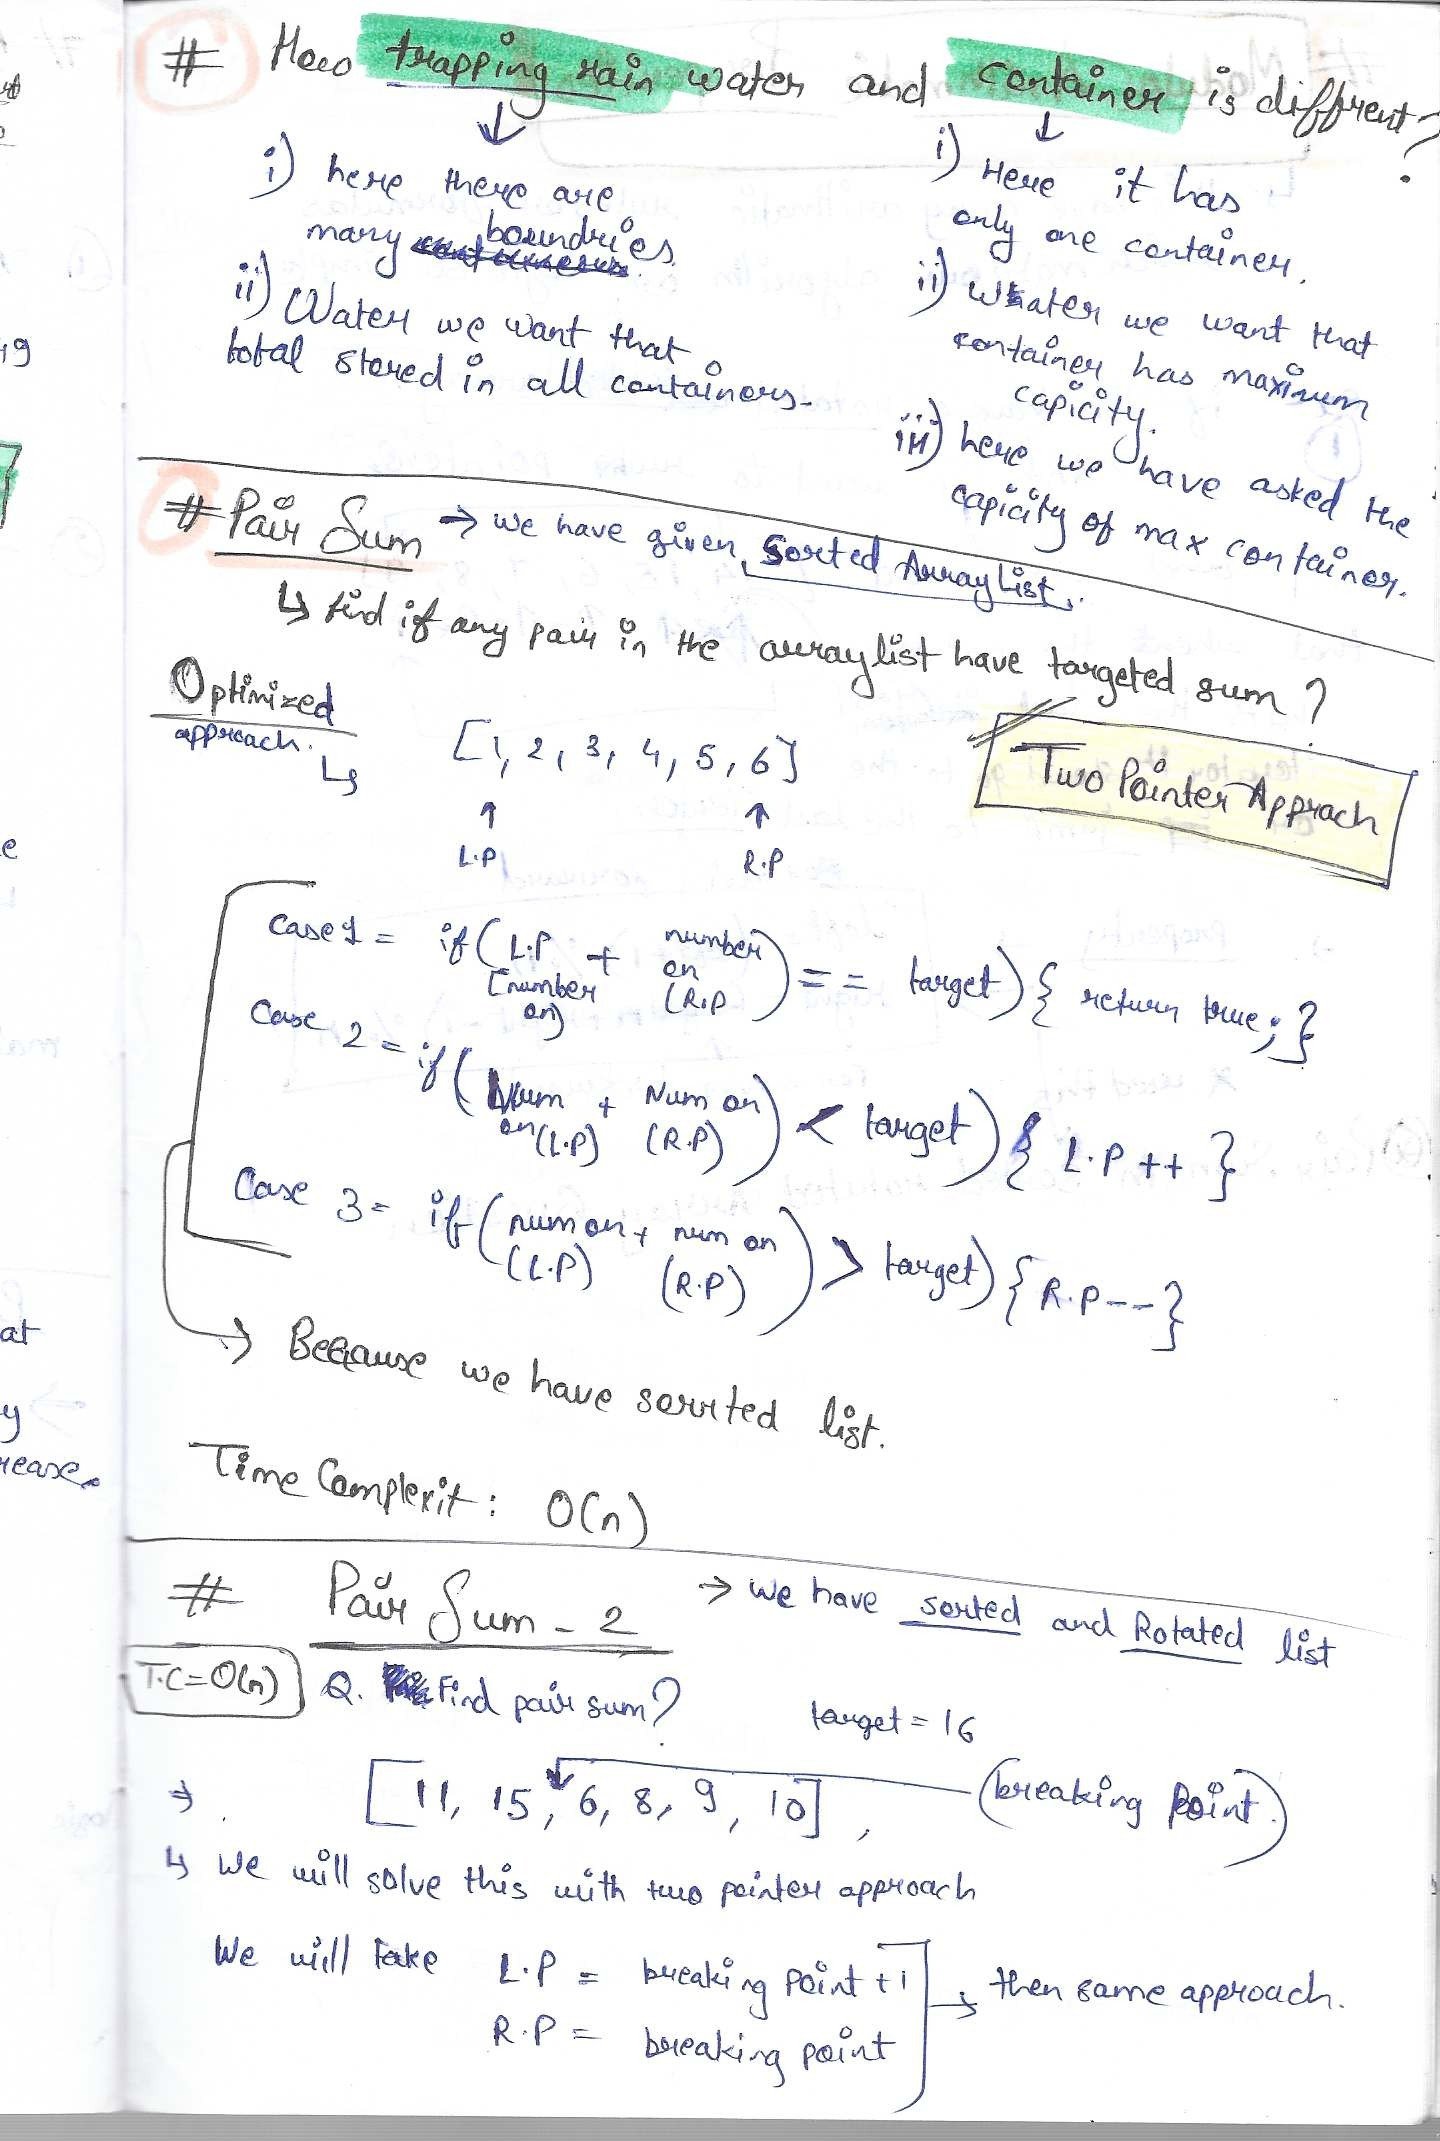 # How trapping rain water and container is diffrent?
i) here there are
many boundries.
ii) Water we want that
total stored in all containers.
i) Here it has
only one container.
ii) Water we want that
container has maximum
capicity.
iii) here we have asked the
capicity of max container.
# Pair Sum → we have given Sorted ArrayList.
↳ find if any pair in the arraylist have targeted sum?
Optimized
approach. ↳
[1, 2, 3, 4, 5, 6]
↑ ↑
L.P R.P
Two Pointer Apprach
Case 1 = if( L.P + number ) == target) { return true; }
[number on] on (R.P
Case 2 = if( Num + Num on ) < target) { L.P ++ }
on (L.P) (R.P)
Case 3 = if( num on + num on ) > target) { R.P -- }
(L.P) (R.P)
→ Because we have sorrted list.
Time Complexit : O(n)
# Pair Sum - 2 → we have sorted and Rotated list
T.C = O(n) Q. Find pair sum? target = 16
→ [11, 15, 6, 8, 9, 10], (breaking point.)
↳ We will solve this with two pointer approach
We will take L.P = breaking point + 1
R.P = breaking point
→ then same approach.
19
e
at
y
rease.